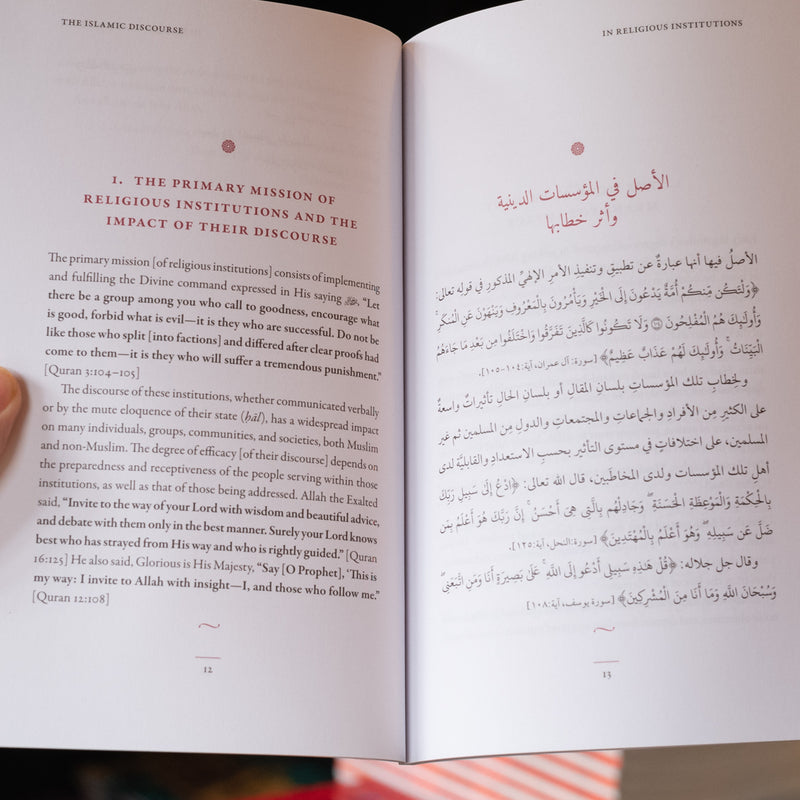 THE ISLAMIC DISCOURSE
1. THE PRIMARY MISSION OF
RELIGIOUS INSTITUTIONS AND THE
IMPACT OF THEIR DISCOURSE
The primary mission [of religious institutions] consists of implementing
and fulfilling the Divine command expressed in His saying ﷻ, “Let
there be a group among you who call to goodness, encourage what
is good, forbid what is evil—it is they who are successful. Do not be
like those who split [into factions] and differed after clear proofs had
come to them—it is they who will suffer a tremendous punishment.”
[Quran 3:104–105]
The discourse of these institutions, whether communicated verbally
or by the mute eloquence of their state (ḥāl), has a widespread impact
on many individuals, groups, communities, and societies, both Muslim
and non-Muslim. The degree of efficacy [of their discourse] depends on
the preparedness and receptiveness of the people serving within those
institutions, as well as that of those being addressed. Allah the Exalted
said, “Invite to the way of your Lord with wisdom and beautiful advice,
and debate with them only in the best manner. Surely your Lord knows
best who has strayed from His way and who is rightly guided.” [Quran
16:125] He also said, Glorious is His Majesty, “Say [O Prophet], ‘This is
my way: I invite to Allah with insight—I, and those who follow me.”
[Quran 12:108]
12
IN RELIGIOUS INSTITUTIONS
الأصل في المؤسسات الدينية
وأثر خطابها
الأصلُ فيها أنها عبارةٌ عن تطبيقِ وتنفيذِ الأمرِ الإلهيِّ المذكور في قوله تعالى:
﴿وَلْتَكُن مِنكُمْ أُمَّةٌ يَدْعُونَ إِلَى الْخَيْرِ وَيَأْمُرُونَ بِالْمَعْرُوفِ وَيَنْهَوْنَ عَنِ الْمُنكَرِ ۚ
وَأُولَٰئِكَ هُمُ الْمُفْلِحُونَ ۝ وَلَا تَكُونُوا كَالَّذِينَ تَفَرَّقُوا وَاخْتَلَفُوا مِن بَعْدِ مَا جَاءَهُمُ
الْبَيِّنَاتُ ۚ وَأُولَٰئِكَ لَهُمْ عَذَابٌ عَظِيمٌ﴾ [سورة: آل عمران، آية: ١٠٤-١٠٥].
ولخطابِ تلك المؤسساتِ بلسانِ المقالِ أو بلسانِ الحالِ تأثيراتٌ واسعةٌ
على الكثيرِ مِن الأفرادِ والجماعاتِ والمجتمعاتِ والدولِ مِن المسلمين ثم غيرِ
المسلمين، على اختلافاتٍ في مستوى التأثير بحسبِ الاستعدادِ والقابليَّة لدى
أهلِ تلك المؤسسات ولدى المخاطَبين، قال الله تعالى: ﴿ادْعُ إِلَىٰ سَبِيلِ رَبِّكَ
بِالْحِكْمَةِ وَالْمَوْعِظَةِ الْحَسَنَةِ ۖ وَجَادِلْهُم بِالَّتِي هِيَ أَحْسَنُ ۚ إِنَّ رَبَّكَ هُوَ أَعْلَمُ بِمَن
ضَلَّ عَن سَبِيلِهِ ۖ وَهُوَ أَعْلَمُ بِالْمُهْتَدِينَ﴾ [سورة: النحل، آية: ١٢٥].
وقال جل جلاله: ﴿قُلْ هَٰذِهِ سَبِيلِي أَدْعُو إِلَى اللَّهِ ۚ عَلَىٰ بَصِيرَةٍ أَنَا وَمَنِ اتَّبَعَنِي ۖ
وَسُبْحَانَ اللَّهِ وَمَا أَنَا مِنَ الْمُشْرِكِينَ﴾ [سورة يوسف، آية: ١٠٨]
13